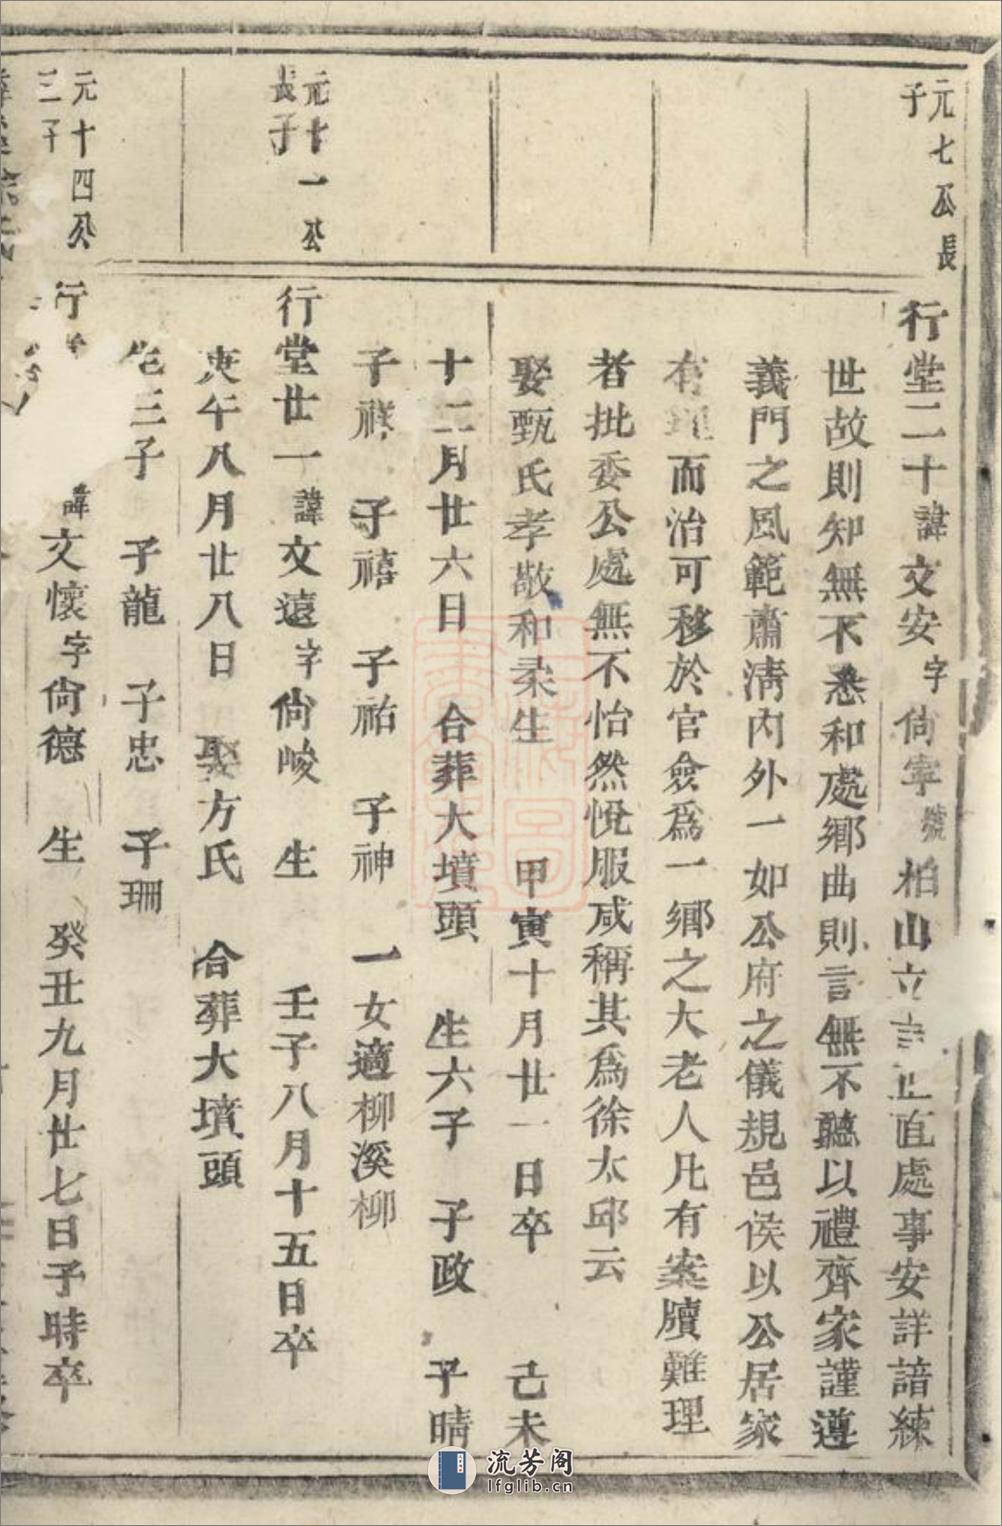 元七公長
子
行堂二十諱文安字尙寜號柏山立言正直處事安詳諳練
世故則知無不悉和處鄉曲則言無不聽以禮齊家謹遵
義門之風範肅淸內外一如公府之儀規邑侯以公居家
有理而治可移於官僉爲一鄉之大老人凡有案牘難理
者批委公處無不怡然悅服咸稱其爲徐太邱云
娶甄氏孝敬和柔生 甲寅十月廿一日卒 己未
十二月廿六日 合葬大墳頭 生六子 子政 子晴
子祥 子禧 子祐 子神 一女適柳溪柳
元十一公
長子
行堂廿一諱文遠字尙峻 生 壬子八月十五日卒
庚午八月廿八日 娶方氏 合葬大墳頭
生三子 子龍 子忠 子珊
元十四公
三子
行 諱文懷字尙德 生 癸丑九月廿七日子時卒
流芳阁
lfglib.cn